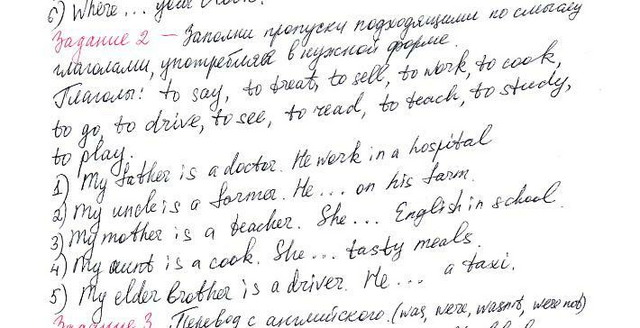 6) Where ... your
Задание 2 – Заполни пропуски подходящими по смыслу
глаголами, употребляя в нужной форме.
Глаголы: to say, to treat, to sell, to work, to cook,
to go, to drive, to see, to read, to teach, to study,
to play.
1) My father is a doctor. He work in a hospital
2) My uncle is a farmer. He ... on his farm.
3) My mother is a teacher. She ... English in school.
4) My aunt is a cook. She ... tasty meals.
5) My elder brother is a driver. He ... a taxi.
Задание 3 Перевод с английского. (was, were, wasnt, were not)